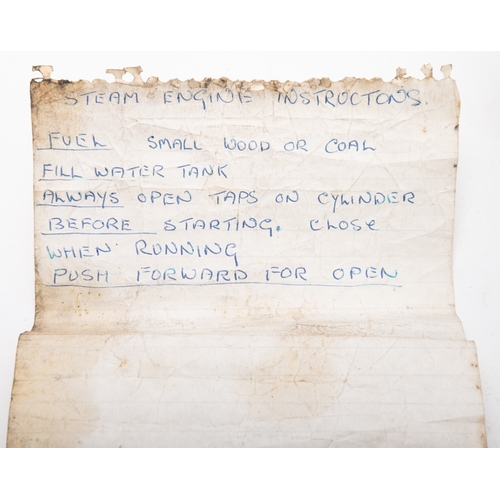 STEAM ENGINE INSTRUCTON'S.
FUEL SMALL WOOD OR COAL
FILL WATER TANK
ALWAYS OPEN TAPS ON CYLINDER
BEFORE STARTING. CLOSE
WHEN RUNNING
PUSH FORWARD FOR OPEN